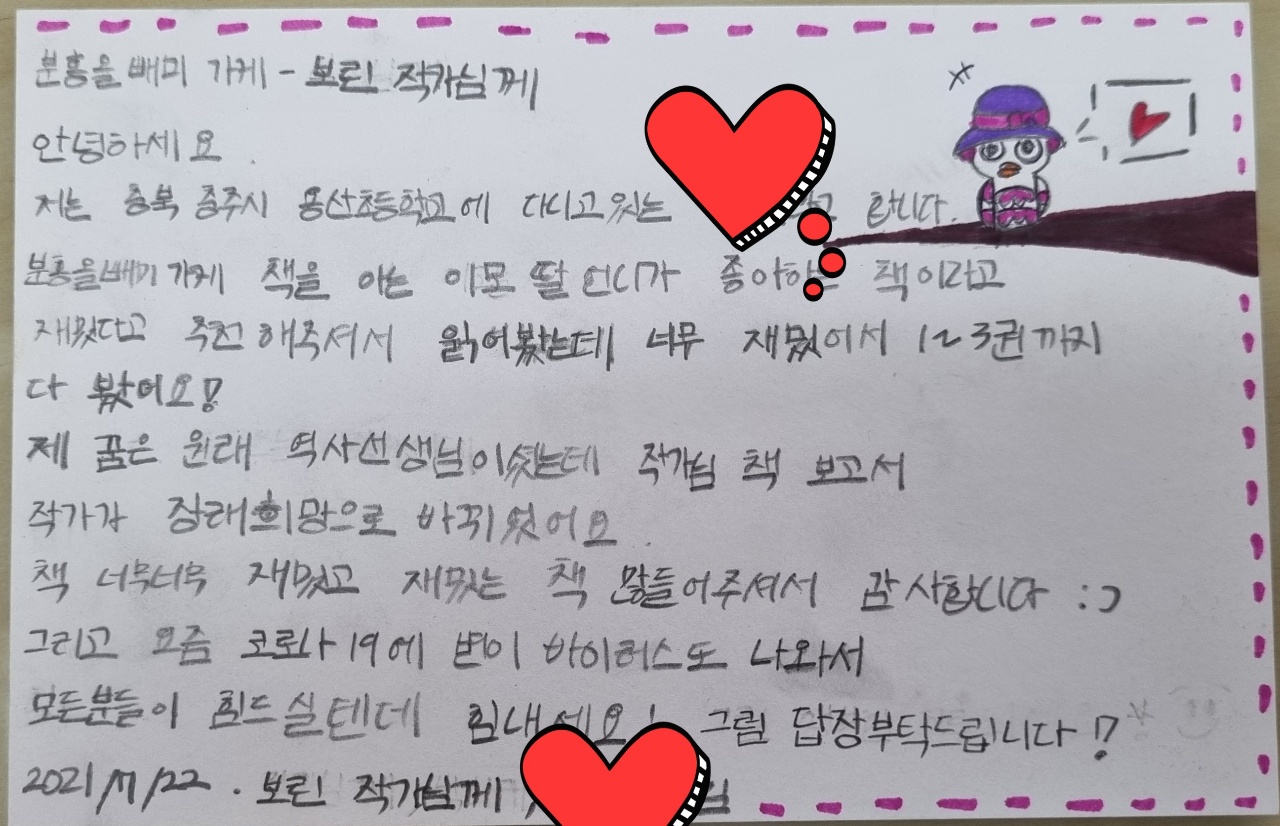 분홍올빼미 가게 - 보린 작가님께
안녕하세요.
저는 충북 충주시 용산초등학교에 다니고있는 합니다.
분홍올빼미가게 책을 아는 이모 딸 언니가 좋아하는 책이라고
재밌다고 추천해주셔서 읽어봤는데 너무 재밌어서 1~3권까지
다 봤어요!
제 꿈은 원래 역사선생님이셨는데 작가님 책 보고서
작가가 장래희망으로 바뀌었어요.
책 너무너무 재밌고 재밌는 책 많들어주셔서 감사합니다 :)
그리고 요즘 코로나19에 변이 바이러스도 나와서
모든분들이 힘드실텐데 힘내세요! 그럼 답장부탁드립니다!?
2021/11/22. 보린 작가님께